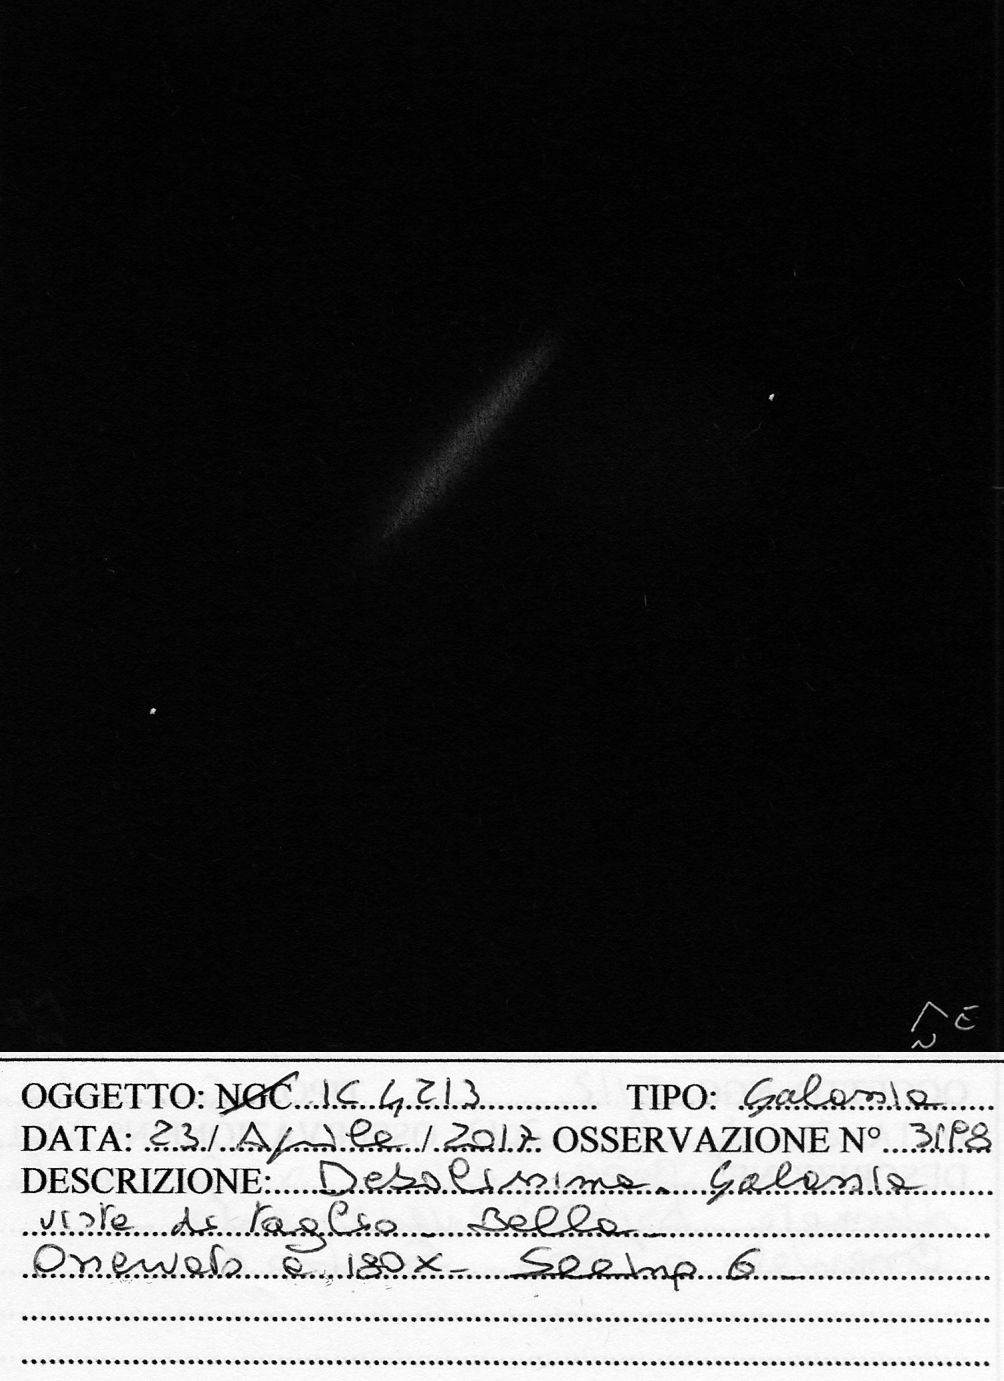 N E
OGGETTO: NGC IC 4213 TIPO: Galassia
DATA: 23 / Aprile / 2017 OSSERVAZIONE N°
DESCRIZIONE: Debolissima. Galassia
vista di taglio. Bella.
Osservata a 180x - Seeing 6 -